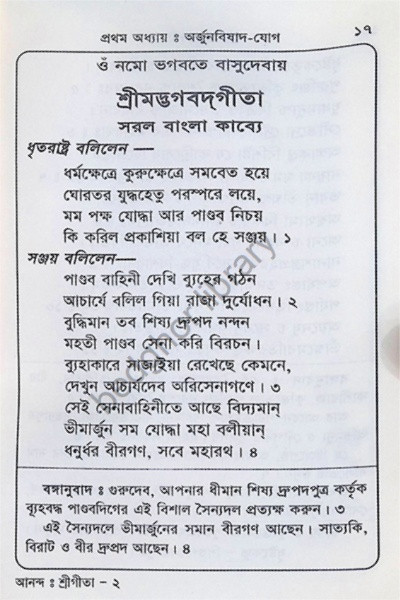 প্রথম অধ্যায় ঃ অর্জুনবিষাদ-যোগ ১৭
ওঁ নমো ভগবতে বাসুদেবায়
শ্রীমদ্ভগবদ্‌গীতা
সরল বাংলা কাব্যে
ধৃতরাষ্ট্র বলিলেন —
ধর্মক্ষেত্রে কুরুক্ষেত্রে সমবেত হয়ে
ঘোরতর যুদ্ধহেতু পরস্পরে লয়ে,
মম পক্ষ যোদ্ধা আর পাণ্ডব নিচয়
কি করিল প্রকাশিয়া বল হে সঞ্জয়। ১
সঞ্জয় বলিলেন—
পাণ্ডব বাহিনী দেখি ব্যুহের গঠন
আচার্যে বলিল গিয়া রাজা দুর্যোধন। ২
বুদ্ধিমান তব শিষ্য দ্রুপদ নন্দন
মহতী পাণ্ডব সেনা করি বিরচন।
ব্যূহাকারে সাজাইয়া রেখেছে কেমনে,
দেখুন আচার্যদেব অরিসেনাগণে। ৩
সেই সেনাবাহিনীতে আছে বিদ্যমান্
ভীমার্জুন সম যোদ্ধা মহা বলীয়ান্
ধনুর্ধর বীরগণ, সবে মহারথ। ৪
বঙ্গানুবাদ ঃ গুরুদেব, আপনার ধীমান শিষ্য দ্রুপদপুত্র কর্তৃক
ব্যূহবদ্ধ পাণ্ডবদিগের এই বিশাল সৈন্যদল প্রত্যক্ষ করুন। ৩
এই সৈন্যদলে ভীমার্জুনের সমান বীরগণ আছেন। সাত্যকি,
বিরাট ও বীর দ্রুপদ আছেন। ৪
আনন্দ ঃ শ্রীগীতা – ২
boddhor library